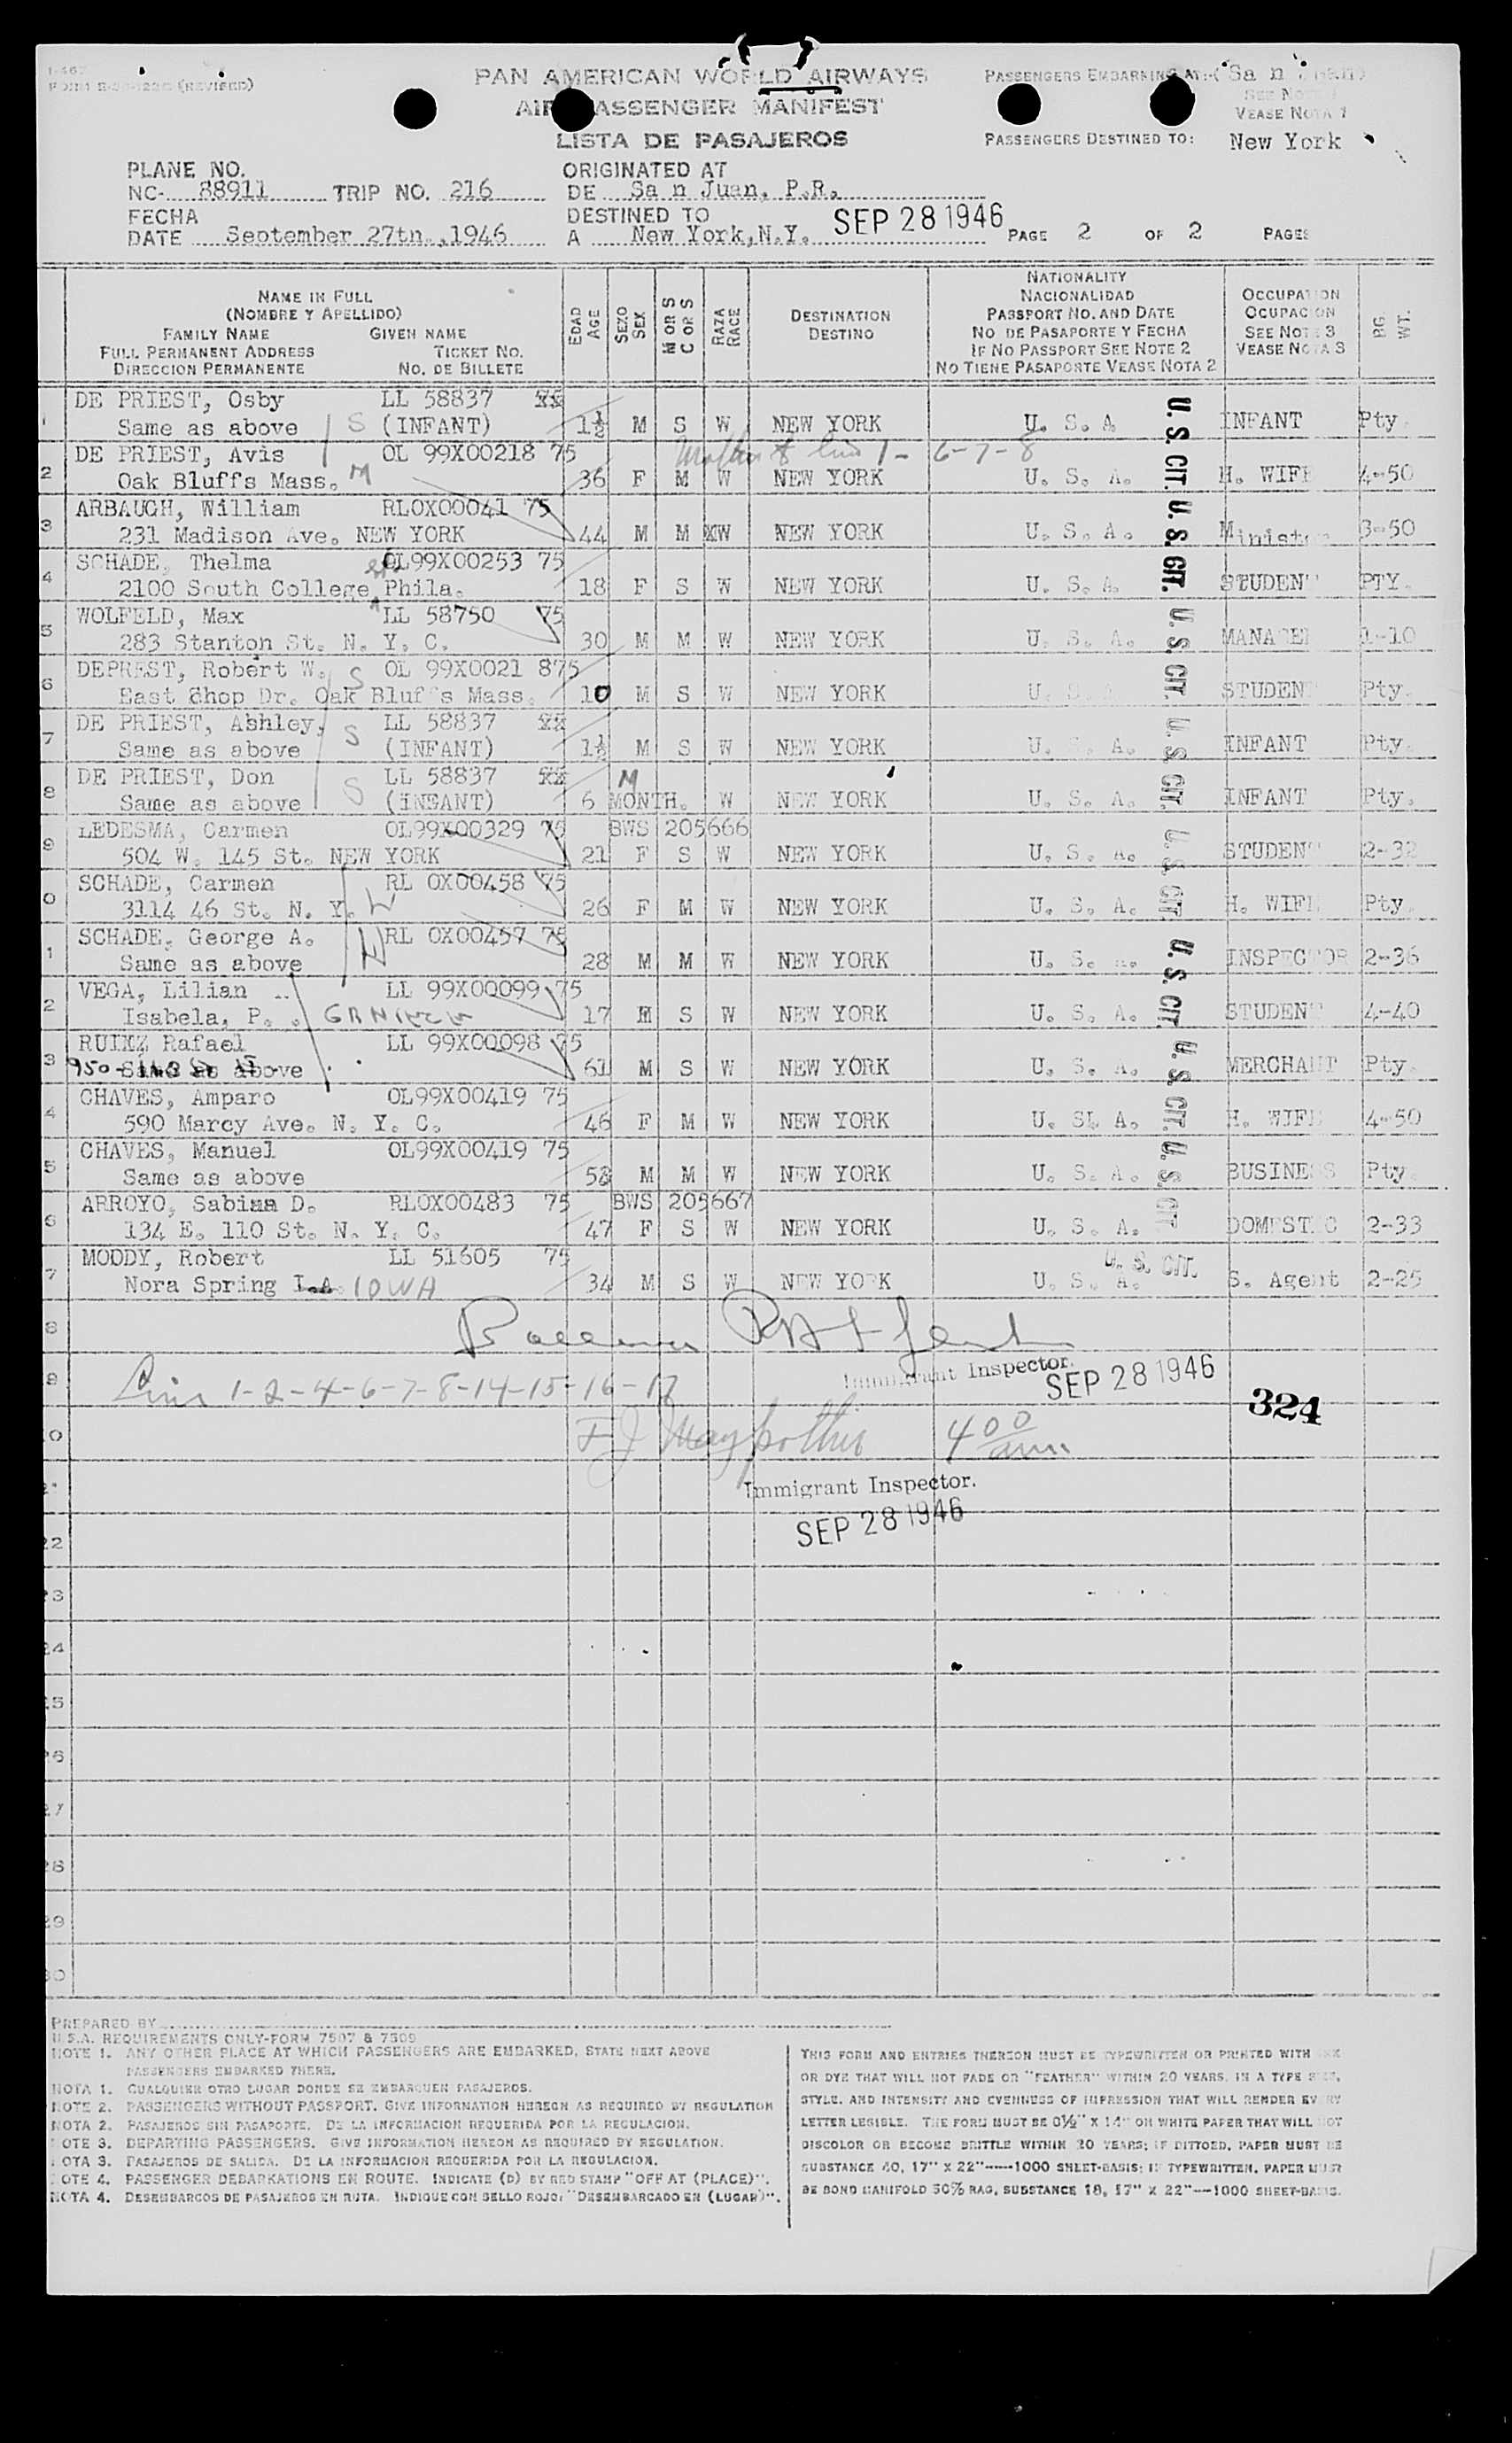 FORM (REVISED)
PAN AMERICAN WORLD AIRWAYS
AIR PASSENGER MANIFEST
LISTA DE PASAJEROS
PASSENGERS EMBARKING AT: (Sa n Juan)
SEE NOTE 1
VEASE NOTA 1
PASSENGERS DESTINED TO: New York
PLANE NO.
NC- 88911 TRIP NO. 216
ORIGINATED AT
DE Sa n Juan, P.R.
FECHA
DATE September 27th.,1946
DESTINED TO
A New York,N.Y. SEP 28 1946
PAGE 2 OF 2 PAGES
NAME IN FULL
(NOMBRE Y APELLIDO)
FAMILY NAME GIVEN NAME
FULL PERMANENT ADDRESS TICKET NO.
DIRECCION PERMANENTE NO. DE BILLETE
EDAD AGE
SEXO SEX
M OR S
C OR S
RAZA RACE
DESTINATION
DESTINO
NATIONALITY
NACIONALIDAD
PASSPORT NO. AND DATE
NO DE PASAPORTE Y FECHA
IF NO PASSPORT SEE NOTE 2
NO TIENE PASAPORTE VEASE NOTA 2
OCCUPATION
OCUPACION
SEE NOTE 3
VEASE NOTA 3
BG. WT.
1 DE PRIEST, Osby LL 58837 xx
Same as above S (INFANT) 1½ M S W NEW YORK U. S. A U. S. CIT. INFANT Pty.
2 DE PRIEST, Avis OL 99X00218 75 Mother of line 1 - 6-7-8
Oak Bluffs Mass. M 36 F M W NEW YORK U. S. A. H. WIFE 4-50
3 ARBAUGH, William RLOX00041 75
231 Madison Ave. NEW YORK 44 M M XW NEW YORK U. S. A. U. S. CIT. Minister 3-50
4 SCHADE, Thelma OL99X00253 75
2100 South College Phila. 18 F S W NEW YORK U. S. A. STUDENT PTY.
5 WOLFELD, Max LL 58750 75
283 Stanton St. N. Y. C. 30 M M W NEW YORK U. S. A. U. S. CIT. MANAGER 1-10
6 DEPREST, Robert W. S OL 99X0021 875
East Chop Dr. Oak Bluffs Mass. 10 M S W NEW YORK U. S. A STUDENT Pty.
7 DE PRIEST, Ashley, LL 58837 xx
Same as above S (INFANT) 1½ M S W NEW YORK U. S. A. U. S. CIT. INFANT Pty.
8 DE PRIEST, Don LL 58837 xx M
Same as above S (INSANT) 6 MONTH. W NEW YORK U. S. A. INFANT Pty.
9 LEDESMA, Carmen OL99X00329 75 BWS 205666
504 W. 145 St. NEW YORK 21 F S W NEW YORK U. S. A. U. S. CIT. STUDENT 2-32
0 SCHADE, Carmen RL OX00458 75
3114 46 St. N. Y. W 26 F M W NEW YORK U. S. A. H. WIFE Pty.
1 SCHADE, George A. H RL OX00457 75
Same as above 28 M M W NEW YORK U. S. A. U. S. CIT. INSPECTOR 2-36
2 VEGA, Lilian LL 99X00099 75
Isabela, P. . 17 M S W NEW YORK U. S. A. STUDENT 4-40
3 RUIXZ Rafael LL 99X00098 75
Same as above 61 M S W NEW YORK U. S. A. U. S. CIT. MERCHANT Pty.
4 CHAVES, Amparo OL99X00419 75
590 Marcy Ave. N. Y. C. 46 F M W NEW YORK U. SL A. H. WIFE 4-50
5 CHAVES, Manuel OL99X00419 75
Same as above 52 M M W NEW YORK U. S. A. U. S. CIT BUSINESS Pty.
6 ARROYO, Sabina D. RLOX00483 75 BWS 205667
134 E. 110 St. N. Y. C. 47 F S W NEW YORK U. S. A. DOMESTIC 2-33
7 MOODY, Robert LL 51605 75
Nora Spring I.A. IOWA 34 M S W NEW YORK U. S. A. U. S. CIT. S. Agent 2-25
8
Immigrant Inspector.
SEP 28 1946
9 Lines 1-2-4-6-7-8-14-15-16-17
324
0 4 00 am
Immigrant Inspector.
SEP 28 1946
22
23
24
25
26
27
28
29
30
PREPARED BY
U.S.A. REQUIREMENTS ONLY-FORM 7507 & 7509
NOTE 1. ANY OTHER PLACE AT WHICH PASSENGERS ARE EMBARKED, STATE NEXT ABOVE
PASSENGERS EMBARKED THERE.
NOTA 1. CUALQUIER OTRO LUGAR DONDE SE EMBARQUEN PASAJEROS.
NOTE 2. PASSENGERS WITHOUT PASSPORT. GIVE INFORMATION HEREON AS REQUIRED BY REGULATION
NOTA 2. PASAJEROS SIN PASAPORTE. DE LA INFORMACION REQUERIDA POR LA REGULACION.
NOTE 3. DEPARTING PASSENGERS. GIVE INFORMATION HEREON AS REQUIRED BY REGULATION.
NOTA 3. PASAJEROS DE SALIDA. DE LA INFORMACION REQUERIDA POR LA REGULACION.
NOTE 4. PASSENGER DEBARKATIONS EN ROUTE. INDICATE (D) BY RED STAMP "OFF AT (PLACE)".
NOTA 4. DESEMBARCOS DE PASAJEROS EN RUTA. INDIQUE CON SELLO ROJO: "DESEMBARCADO EN (LUGAR)".
THIS FORM AND ENTRIES THEREON MUST BE TYPEWRITTEN OR PRINTED WITH INK
OR DYE THAT WILL NOT FADE OR "FEATHER" WITHIN 20 YEARS, IN A TYPE SIZE,
STYLE, AND INTENSITY AND EVENNESS OF IMPRESSION THAT WILL RENDER EVERY
LETTER LEGIBLE. THE FORM MUST BE 8½" X 14" ON WHITE PAPER THAT WILL NOT
DISCOLOR OR BECOME BRITTLE WITHIN 20 YEARS; IF DITTOED, PAPER MUST BE
SUBSTANCE 40, 17" X 22"-----1000 SHEET-BASIS; IF TYPEWRITTEN, PAPER MUST
BE BOND MANIFOLD 50% RAG, SUBSTANCE 18, 17" X 22"---1000 SHEET-BASIS.